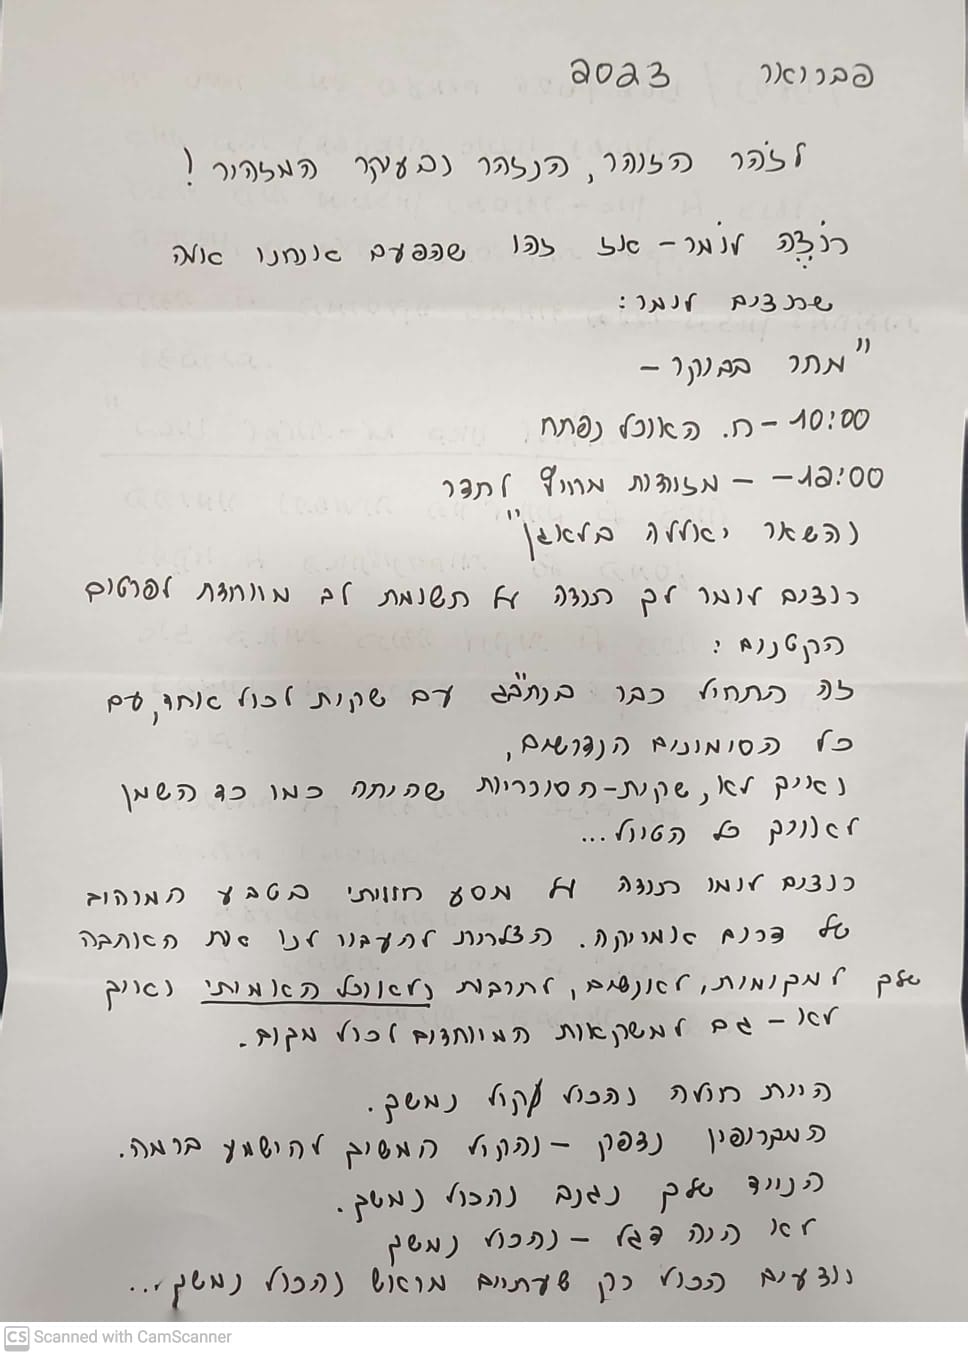 פברואר 2023
לזֹהר הזוהר, הנזהר ובעיקר המזהיר!
רוֹצֶה לוֹמר – אז זהו שהפעם אנחנו אלה
שרוצים לומר:
"מחר בבוקר –
10:00 – ח. האוכל נפתח
12:00 – – מזוודות מחוץ לחדר
והשאר יאללה בלאגן"
רוצים לומר לך תודה על תשומת לב מיוחדת לפרטים
הקטנים:
זה התחיל כבר בנתב"ג עם שקית לכול אחד, עם
כל הסימונים הנדרשים,
ואיך לא, שקית-הסוכריות שהיתה כמו כד השמן
לאורך כל הטיול...
רוצים לומר תודה על מסע חוויתי בטבע המרהיב
של דרום אמריקה. הצלחת להעביר לנו את האהבה
שלך למקומות, לאנשים, לתרבות ולאוכל האמיתי ואיך
לא – גם למשקאות המיוחדים לכול מקום.
היית חולה והכול כקול נמשך.
המקרופון נדפק – והקול המשיך להישמע ברמה.
הנייד שלך נגנב והכול נמשך.
לא היה דגל – והכול נמשך
יודעים הכול רק שעתיים מראש והכול נמשך...
CS Scanned with CamScanner